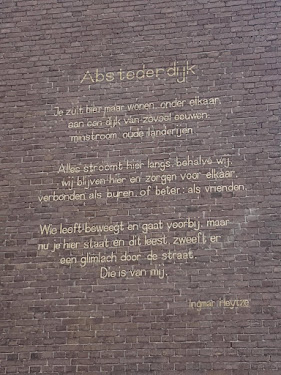 Abstederdijk
Je zult hier maar wonen, onder elkaar,
aan een dijk van zoveel eeuwen:
minstroom, oude landerijen.
Alles stroomt hier langs, behalve wij,
wij blijven hier en zorgen voor elkaar,
verbonden als buren, of beter: als vrienden.
Wie leeft beweegt en gaat voorbij, maar
nu je hier staat en dit leest, zweeft er
een glimlach door de straat.
Die is van mij.
Ingmar Heytze